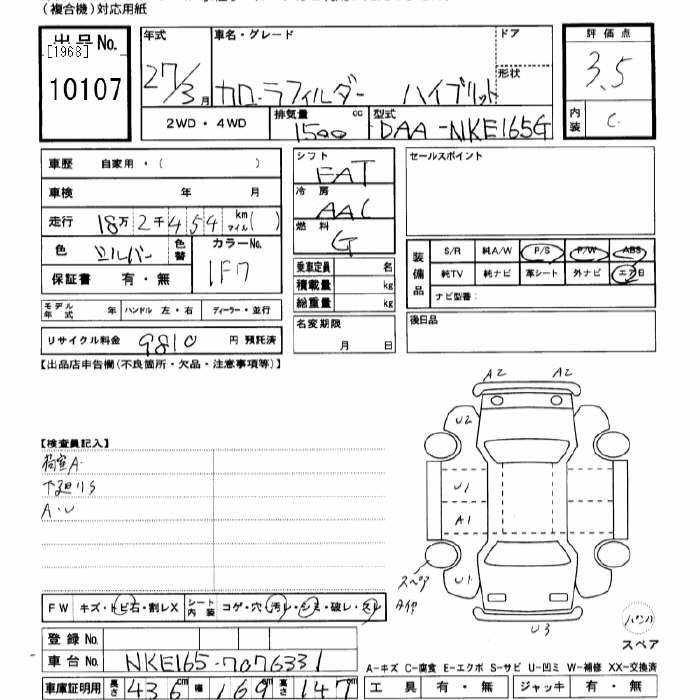 (複合機)対応用紙
出品No. [1963] 10107
年式 27/3月 車名・グレード カローラフィルダー ハイブリット ドア 形状
評価点 3.5
2WD・4WD 排気量 1500 cc 型式 DAA-NKE165G
内装 C
車歴 自家用・( )
シフト FAT
セールスポイント
車検 年 月
冷房 AAC
走行 18万2千454 km マイル( )
燃料 G
色 シルバー 色替 カラーNo. 1F7
保証書 有・無
装備品 S/R 純A/W P/S P/W ABS
純TV 純ナビ 革シート 外ナビ エアB
ナビ型番:
乗車定員 名
積載量 kg
総重量 kg
モデル年式 年 ハンドル 左・右 ディーラー・並行
名変期限 月 日
後日品
リサイクル料金 9810 円 預託済
【出品店申告欄(不良箇所・欠品・注意事項等)】
A2 A2
U2
【検査員記入】
荷室A
下廻りS
A・U
U1
A1
スペア
U1
U3
FW キズ・トビ石・割レX シート内装 コゲ・穴・汚レ・シミ・破レ・スレ
パンク
スペア
登録No.
車台No. NKE165-7076331
A-キズ C-腐食 E-エクボ S-サビ U-凹ミ W-補修 XX-交換済
車庫証明用 長さ 436cm 幅 169cm 高さ 147cm
工具 有・無 ジャッキ 有・無